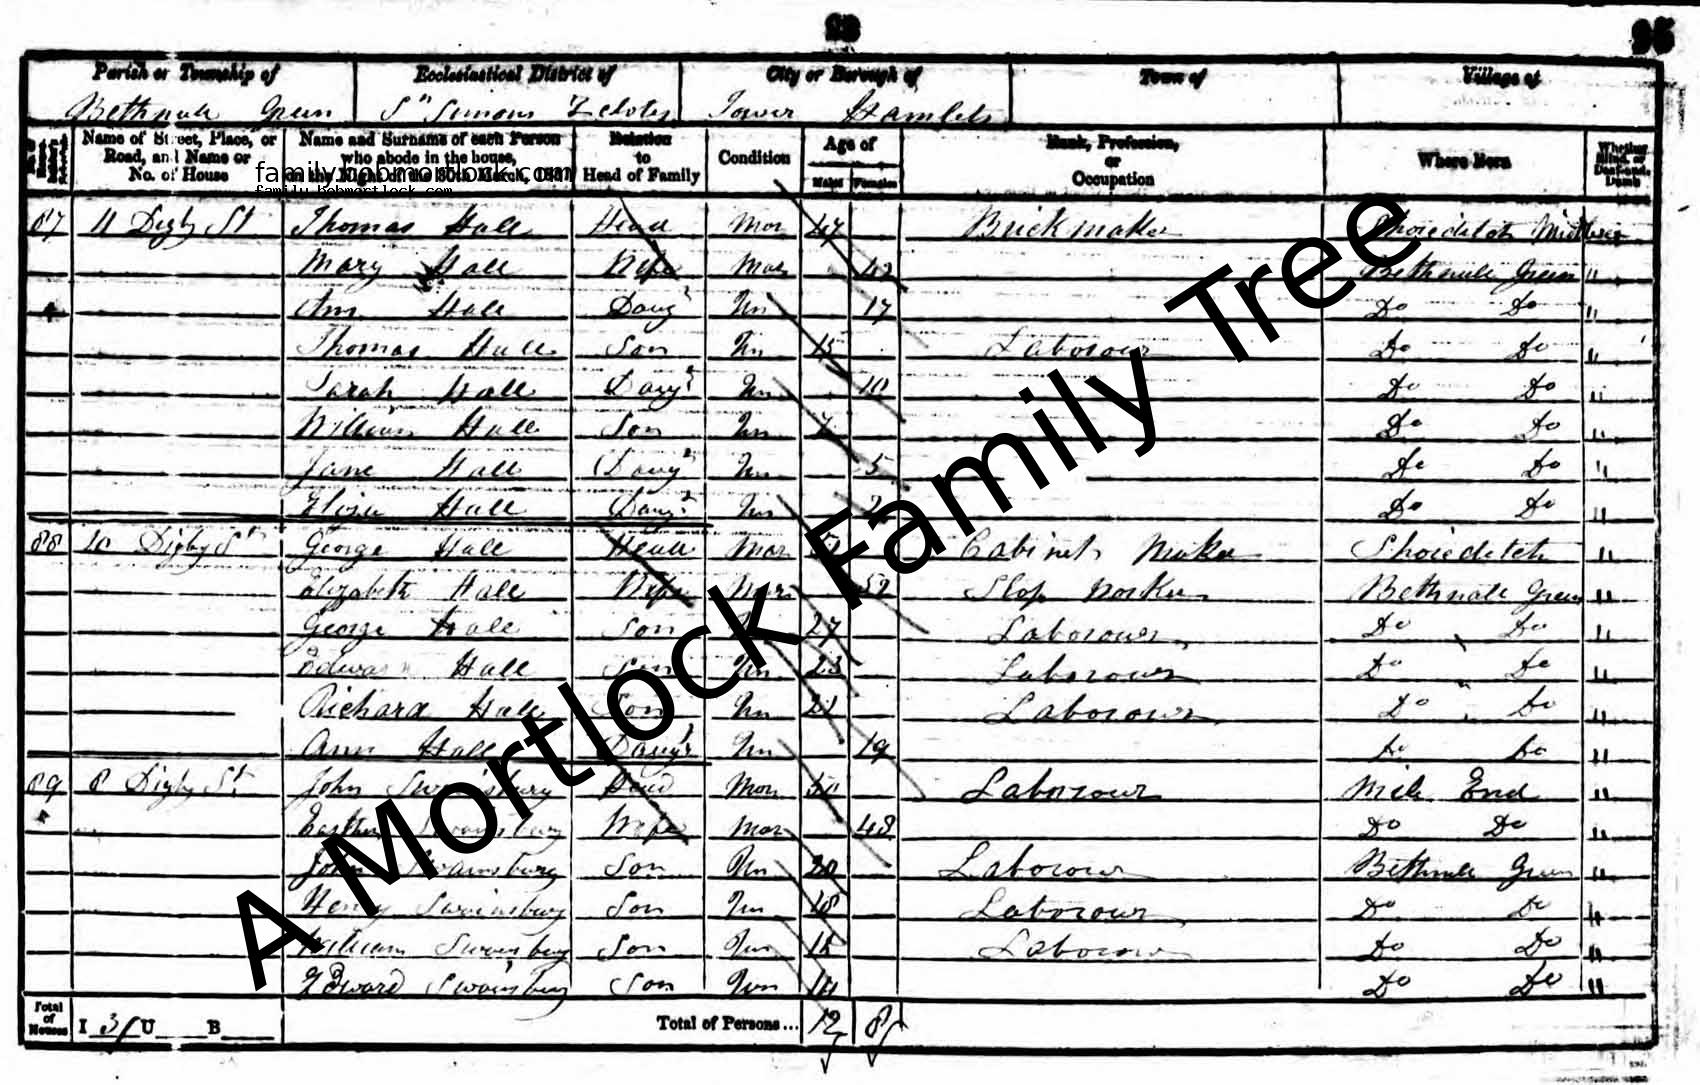 Parish or Township of Ecclesiastical District of City or Borough of Town of Village of
Bethnal Green St Simons Zelotes Tower Hamlets
Name of Street, Place, or Road, and Name or No. of House
Name and Surname of each Person who abode in the house,
Relation to Head of Family
Condition
Age of
Males Females
Rank, Profession, or Occupation
Where Born
Whether Blind, or Deaf-and-Dumb
family.bobmortlock.com
family.bobmortlock.com
87 11 Digby St Thomas Hall Head Mar 47 Brickmaker Shoreditch Middlesex
Mary Hall Wife Mar 42 Bethnale Green "
Ann Hall Daugr Un 17 Do Do "
Thomas Hall Son Un 15 Labourer Do Do "
Sarah Hall Daugr Un 10 Do Do "
William Hall Son Un 7 Do Do "
Jane Hall Daugr Un 5 Do Do "
Eliza Hall Daugr Un 2 Do Do "
88 10 Digby St George Hall Head Mar Cabinet Maker Shoreditch "
Elizabeth Hall Wife Mar 52 Slop Worker Bethnale Green "
George Hall Son 27 Labourer Do Do "
Edward Hall Son Un 23 Labourer Do Do "
Richard Hall Son Un 21 Labourer Do Do "
Ann Hall Daugr Un 19 Do Do "
89 8 Digby St John Swainsbury Head Mar 50 Labourer Mile End "
Easther Swainsbury Wife Mar 48 Do Do "
John Swainsbury Son Un 20 Labourer Bethnale Green "
Henry Swainsbury Son Un 18 Labourer Do Do "
William Swainsbury Son Un 15 Labourer Do Do "
Edward Swainsbury Son Un Do Do "
Total of Houses I 3 U B Total of Persons... 12 8
A Mortlock Family Tree